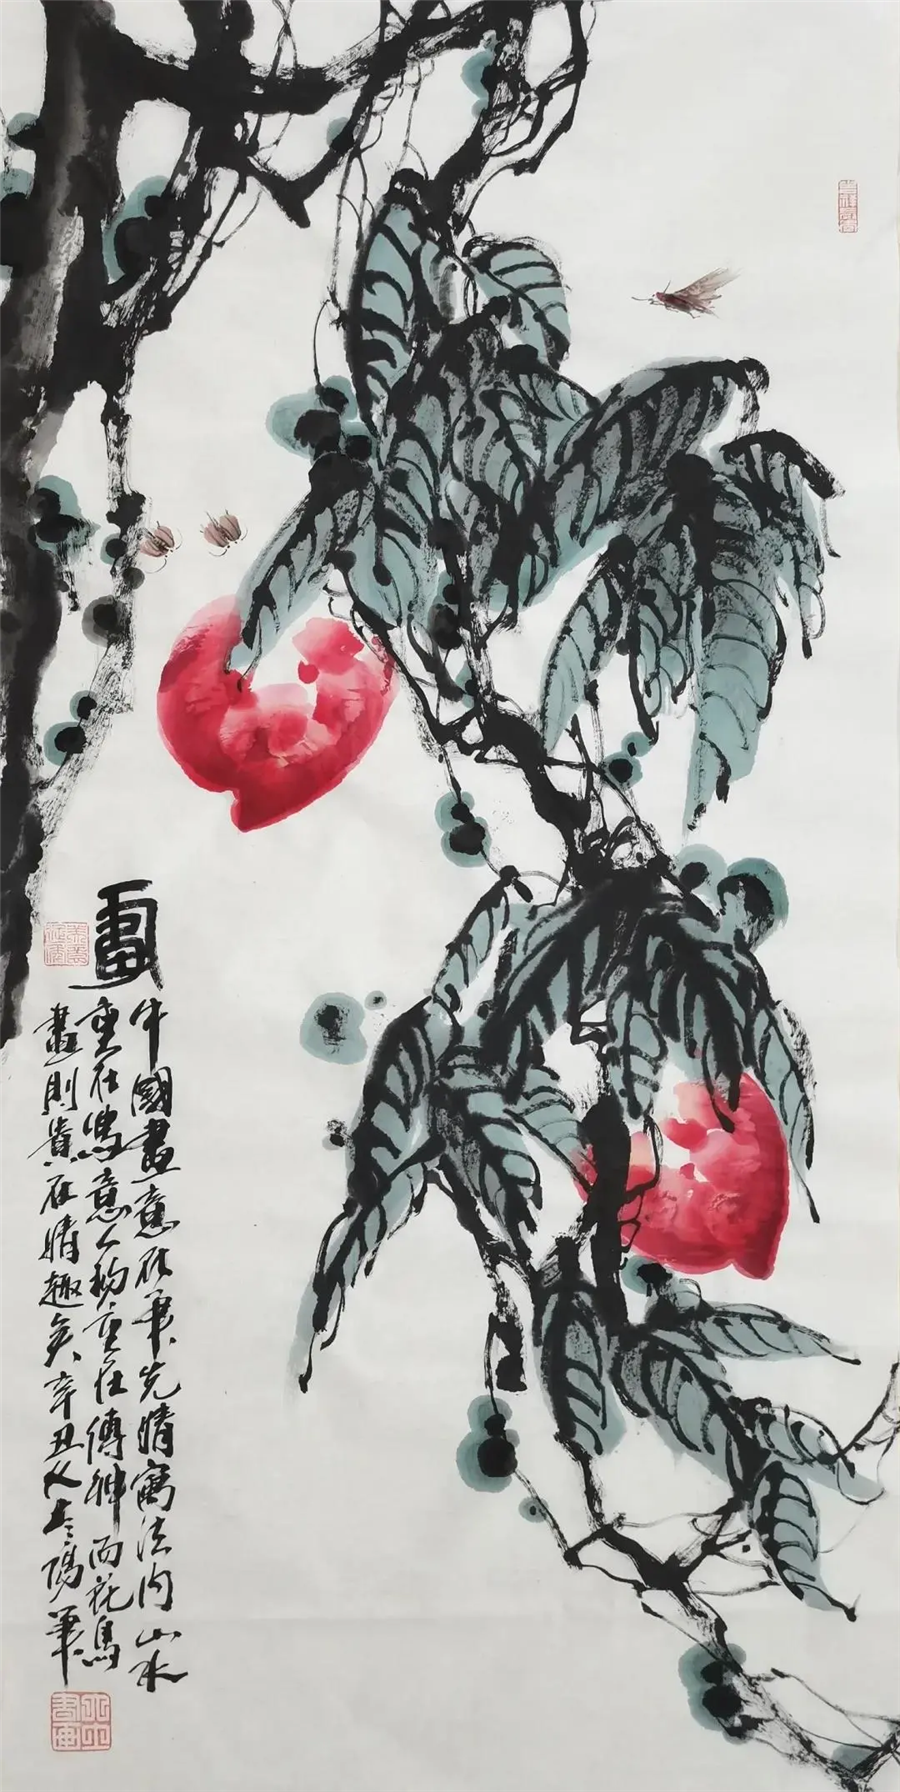 中國畫意在筆先情寓法内山水
重在寫意人物重在傳神而花鳥
畫則貴在情趣矣辛丑陽筆